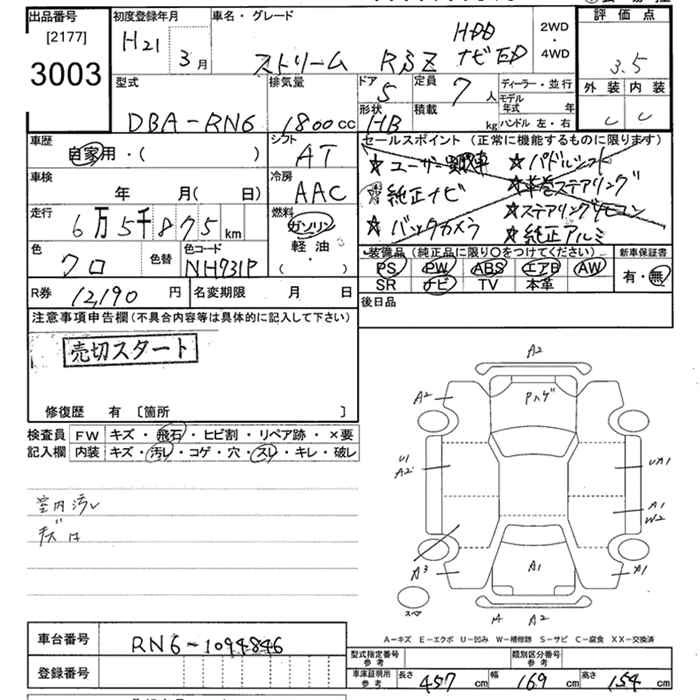 出品番号
[2177]
3003
初度登録年月
H21 3月
車名・グレード
ストリーム RSZ HDD ナビED
2WD
・
4WD
評価点
3.5
外装 内装
C C
型式
DBA-RN6
排気量
1800cc
ドア
5
形状
HB
定員
7人
積載
kg
ディーラー・並行
モデル年式 年
ハンドル 左・右
車歴
自家用・( )
シフト
AT
セールスポイント (正常に機能するものに限ります)
★ユーザー買取車 ★パドルシフト
純正ナビ ★本革巻ステアリング
★バックカメラ ★ステアリングリモコン
★純正アルミ
車検
年 月(日)
冷房
AAC
走行
6万5千875km
燃料
ガソリン
軽油
( ・ )
色
クロ
色替
色コード
NH731P
装備品 (純正品に限り○をつけてください)
PS PW ABS エアB AW
SR ナビ TV 本革
新車保証書
有・無
R券 12,190円
名変期限 月 日
後日品
注意事項申告欄(不具合内容等は具体的に記入して下さい)
売切スタート
修復歴 有 [箇所 ]
検査員
記入欄
FW キズ・飛石・ヒビ割・リペア跡・×要
内装 キズ・汚レ・コゲ・穴・スレ・キレ・破レ
室内汚レ
キズは
A2
A2
Pハゲ
U1
A2
UA1
A1
W2
A3
A1
A1
スペア
A2
A-キズ E-エクボ U-凹み W-補修跡 S-サビ C-腐食 XX-交換済
車台番号 RN6-1094846
登録番号
型式指定番号
参考
類別区分番号
参考
車庫証明所
参考
長さ 457cm 幅 169cm 高さ 154cm